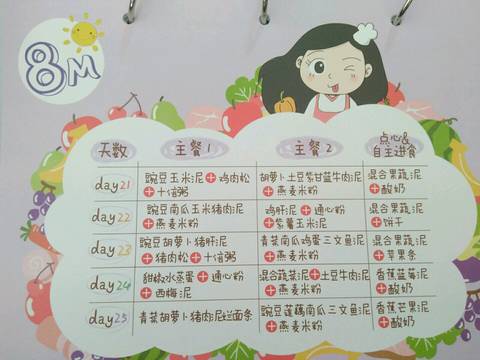 8M
天数 主餐1 主餐2 点心&
自主进食
day21 豌豆玉米泥+鸡肉松 胡萝卜土豆紫甘蓝牛肉泥 混合果蔬泥
+十倍粥 +燕麦米粉 +酸奶
day22 豌豆南瓜玉米猪肉泥 鸡肝泥+通心粉 混合果蔬泥
+燕麦米粉 +紫薯玉米泥 +饼干
day23 豌豆胡萝卜猪肝泥 青菜南瓜鸡蛋三文鱼泥 混合果蔬泥
+猪肉松+十倍粥 +燕麦米粉 +苹果条
day24 甜椒水蒸蛋+通心粉 混合蔬菜泥+土豆牛肉泥 香蕉蓝莓泥
+西梅泥 +燕麦米粉 +酸奶
day25 青菜胡萝卜猪肉泥烂面条 豌豆莲藕南瓜三文鱼泥 香蕉芒果泥
+燕麦米粉 +酸奶